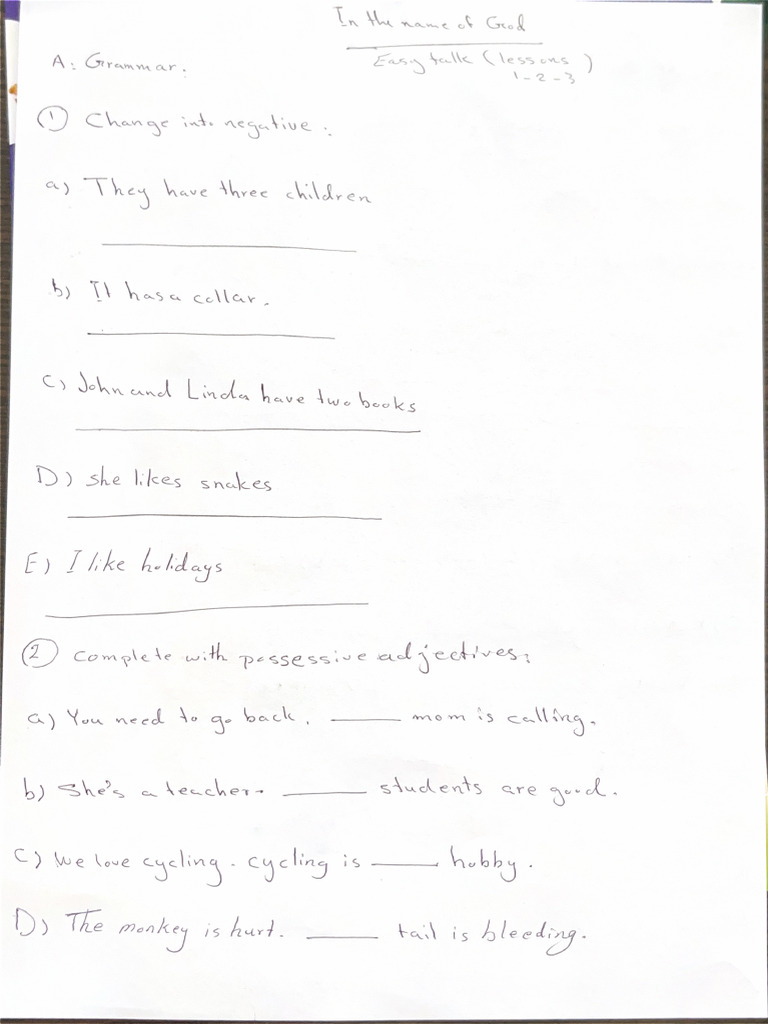 In the name of God
A: Grammar:
Easy talk (lessons 1-2-3)
① Change into negative:
a) They have three children
b) It has a collar.
C) John and Linda have two books
D) she likes snakes
E) I like holidays
② complete with possessive adjectives:
a) You need to go back. _____ mom is calling.
b) She's a teacher. _____ students are good.
C) We love cycling. cycling is _____ hobby.
D) The monkey is hurt. _____ tail is bleeding.